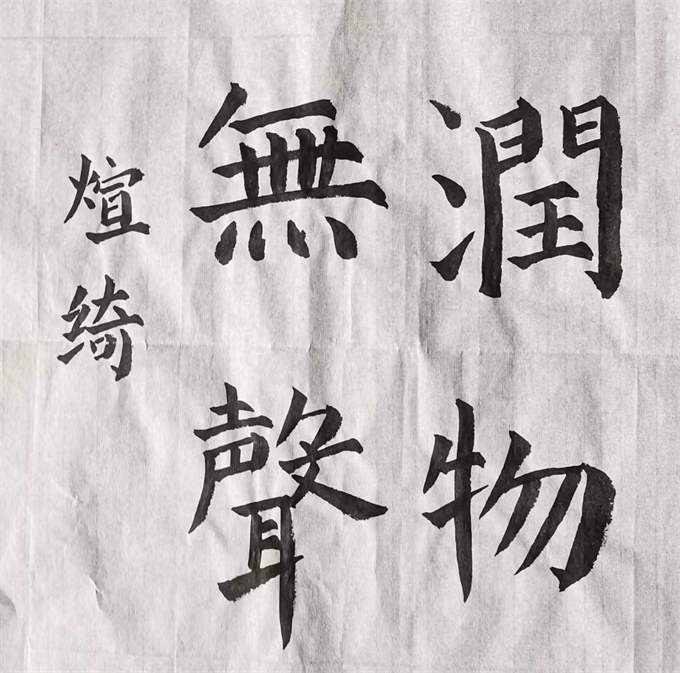 潤物
無聲
煊绮